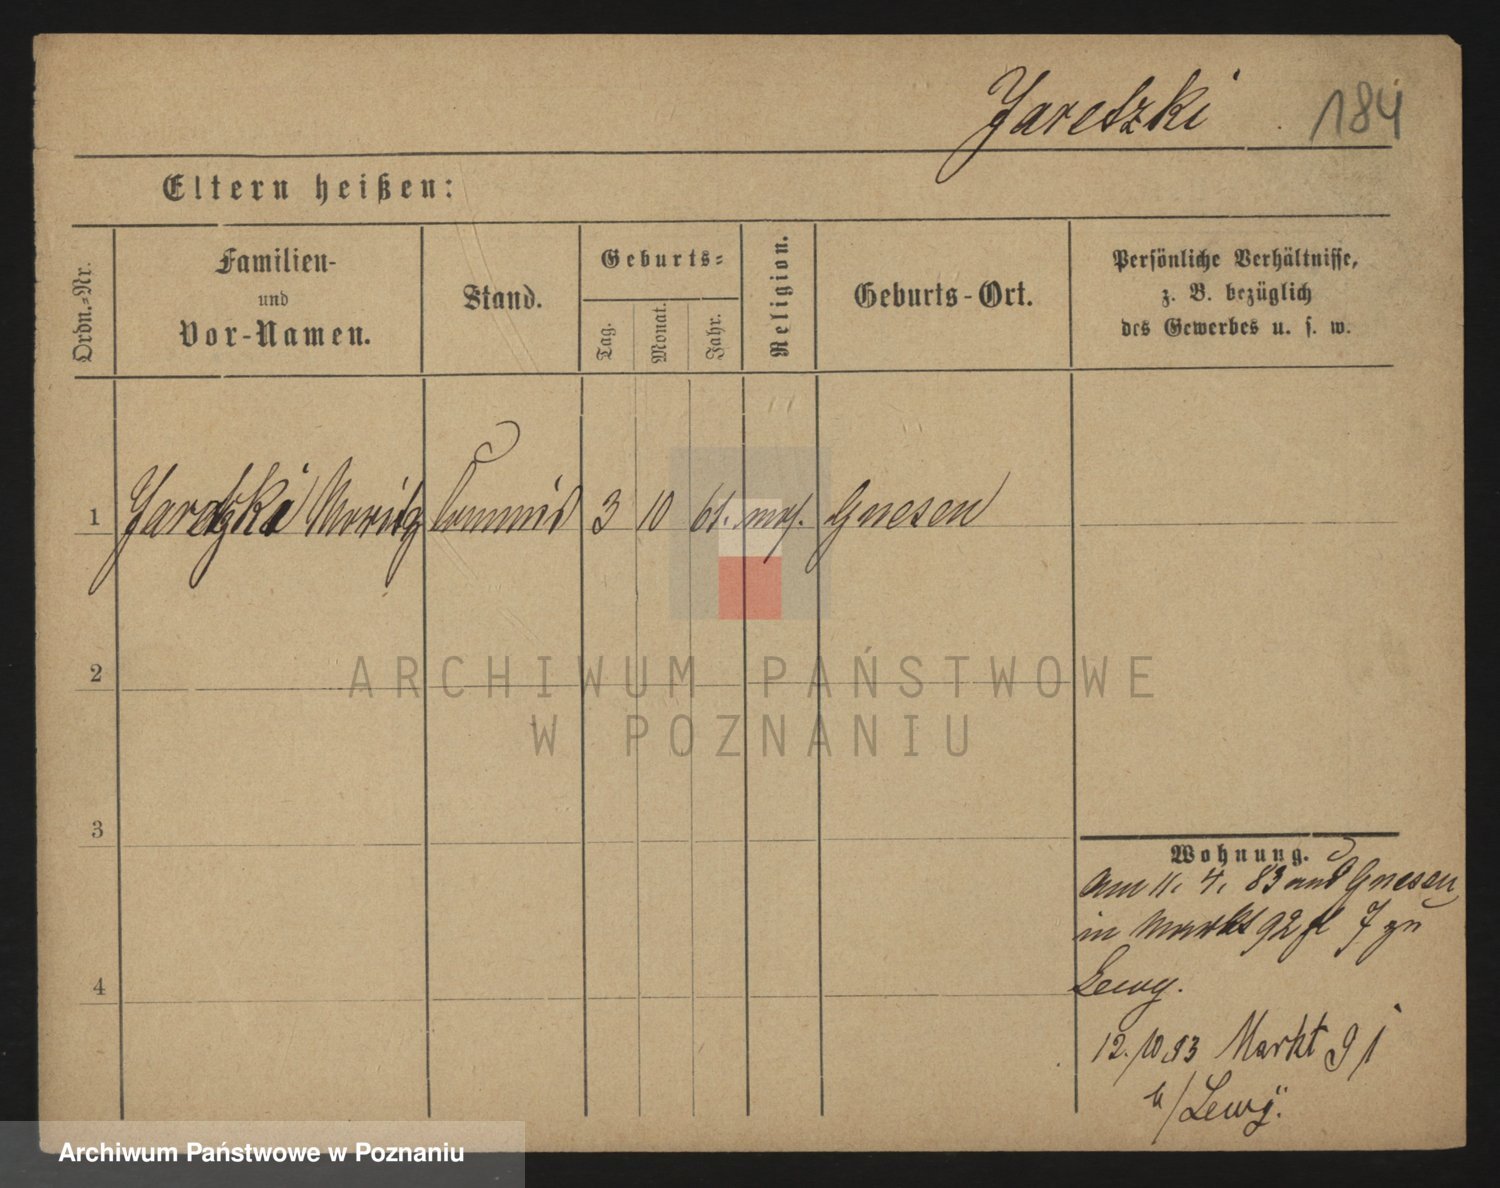 Jaretzki 184
Eltern heißen:
Ordn.-Nr.
Familien-
und
Vor-Namen.
Stand.
Geburts-
Tag.
Monat.
Jahr.
Religion.
Geburts-Ort.
Persönliche Verhältnisse,
z. B. bezüglich
des Gewerbes u. s. w.
1 Jaretzki Moritz Commis 3 10 61. mos. Gnesen
2
3
4
Wohnung.
Am 11. 4. 83 aus Gnesen
in Markt 92 7 zu
Lewy.
12./10 83 Markt 91
b/Lewÿ.
ARCHIWUM PAŃSTWOWE
W POZNANIU
Archiwum Państwowe w Poznaniu